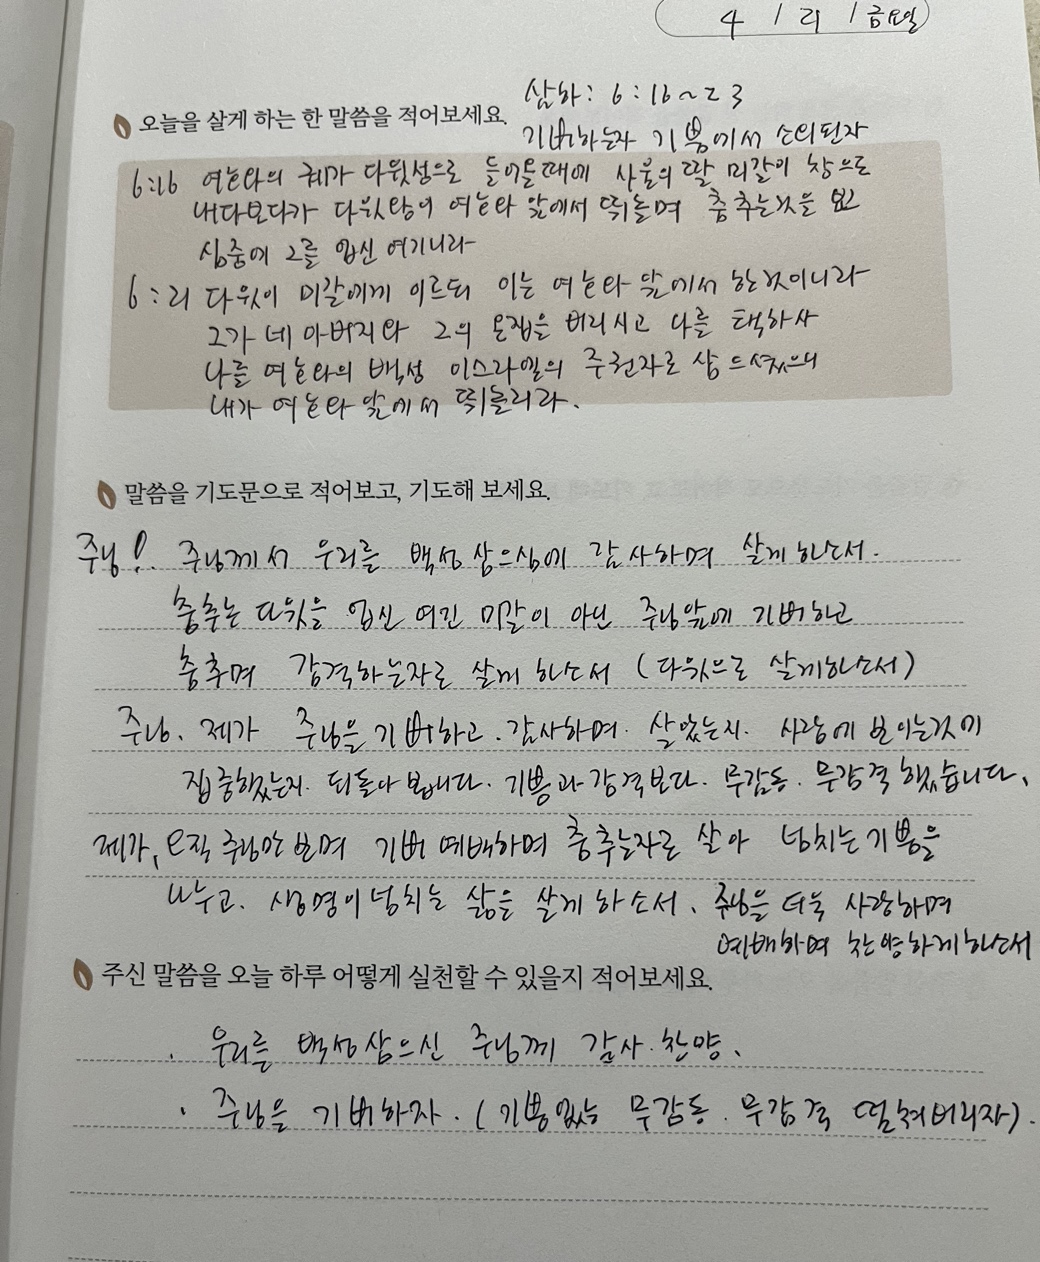 4 / 21 / 금요일
삼하: 6:16~23
오늘을 살게 하는 한 말씀을 적어보세요.
기뻐하는자 기쁨에서 소외된자
6:16 여호와의 궤가 다윗성으로 들어올때에 사울의 딸 미갈이 창으로
내다보다가 다윗왕이 여호와 앞에서 뛰놀며 춤추는것을 보고
심중에 그를 업신 여기니라
6:21 다윗이 미갈에게 이르되 이는 여호와 앞에서 한것이니라
그가 네 아버지와 그의 온집을 버리시고 나를 택하사
나를 여호와의 백성 이스라엘의 주권자로 삼으셨으니
내가 여호와 앞에서 뛰놀리라.
말씀을 기도문으로 적어보고, 기도해 보세요.
주님! 주님께서 우리를 백성 삼으심에 감사하며 살게 하소서.
춤추는 다윗을 업신 여긴 미갈이 아닌 주님앞에 기뻐하고
춤추며 감격하는자로 살게 하소서 (다윗으로 살게하소서)
주님. 제가 주님을 기뻐하고. 감사하며. 살았는지. 사람에 보이는것에
집중했는지. 되돌아 봅니다. 기쁨과 감격보다. 무감동. 무감격 했습니다.
제가, 오직 주님만 보며 기뻐 예배하며 춤추는자로 살아 넘치는 기쁨을
나누고. 생명이 넘치는 삶을 살게 하소서. 주님을 더욱 사랑하며
예배하며 찬양하게하소서
주신 말씀을 오늘 하루 어떻게 실천할 수 있을지 적어보세요.
· 우리를 백성삼으신 주님께 감사. 찬양.
· 주님을 기뻐하자. (기쁨없는 무감동. 무감격 떨쳐버리자).